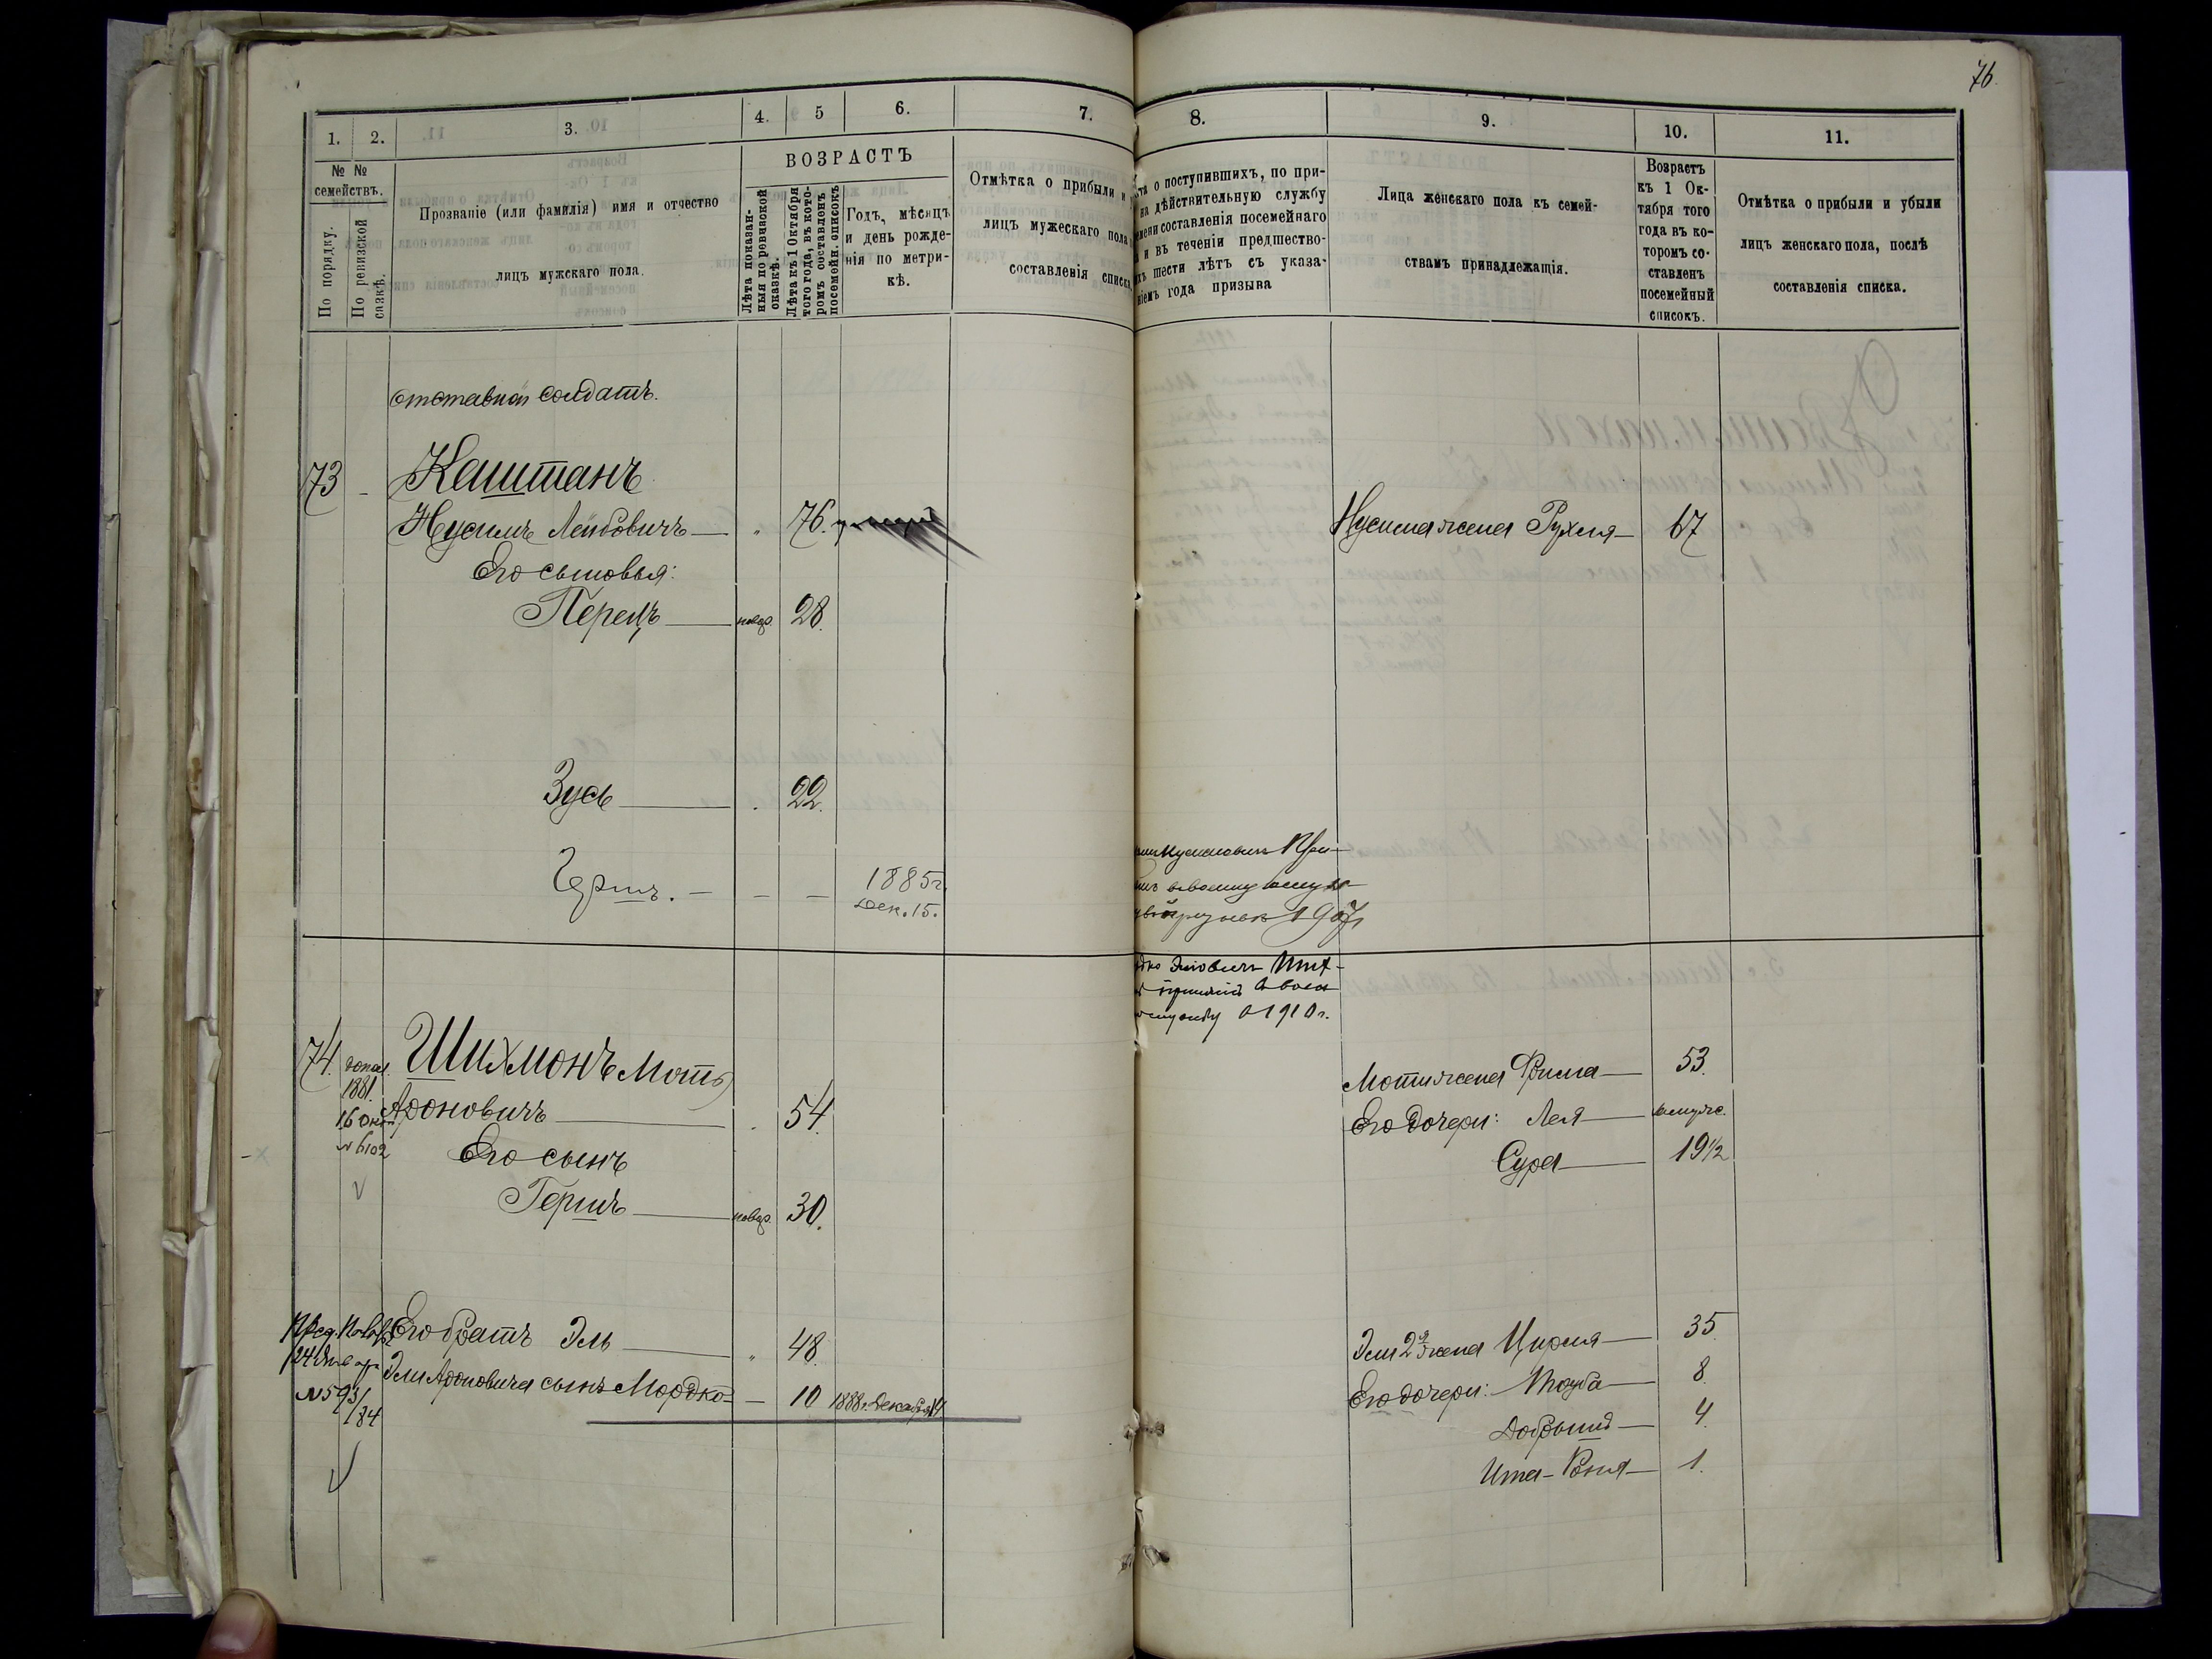 76
1.
2.
3.
4.
5
6.
7.
8.
9.
10.
11.
№ №
семействъ.
По порядку.
По ревизской
сказкѣ.
Прозваніе (или фамилія) имя и отчество
лицъ мужскаго пола.
ВОЗРАСТЪ
Лѣта показан-
ныя по ревизской
сказкѣ.
Лѣта къ 1 Октября
того года, въ кото-
ромъ составленъ
посемейн. списокъ
Годъ, мѣсяцъ
и день рожде-
нія по метри-
кѣ.
Отмѣтка о прибыли и
лицъ мужескаго пола
составленія списка
о поступившихъ, по при-
на дѣйствительную службу
составленія посемейнаго
и въ теченіи предшество-
шести лѣтъ съ указа-
ніемъ года призыва
Лица женскаго пола къ семей-
ствамъ принадлежащія.
Возрастъ
къ 1 Ок-
тября того
года въ ко-
торомъ со-
ставленъ
посемейный
списокъ.
Отмѣтка о прибыли и убыли
лицъ женскаго пола, послѣ
составленія списка.
отставной солдатъ.
73 - Каштанъ
Нусимъ Лейбовичъ — " 76.
Нусима жена Рухля — 67
Его сыновья:
Перецъ — новор. 28.
Зусь — . 22.
Гершъ. — — — 1885г.
Дек. 15.
1907
1910 г.
74. допол. Шихмонъ Мотя
1881.
Ароновичъ — . 54.
16
№ 6102
Его сынъ
Гершъ — новор. 30.
Мотя жена Фрима — 53.
Его дочери: Лея — замуж.
Сура — 19 1/2
Его братъ Эль — " 48.
24 Января
Эли Ароновича сынъ Мордко — — 10 1888 г. Декабря
№ 593/
184
Эли 2я жена Цирля — 35.
Его дочери: Тауба — 8.
Добрыш — 4.
Ита - — 1.